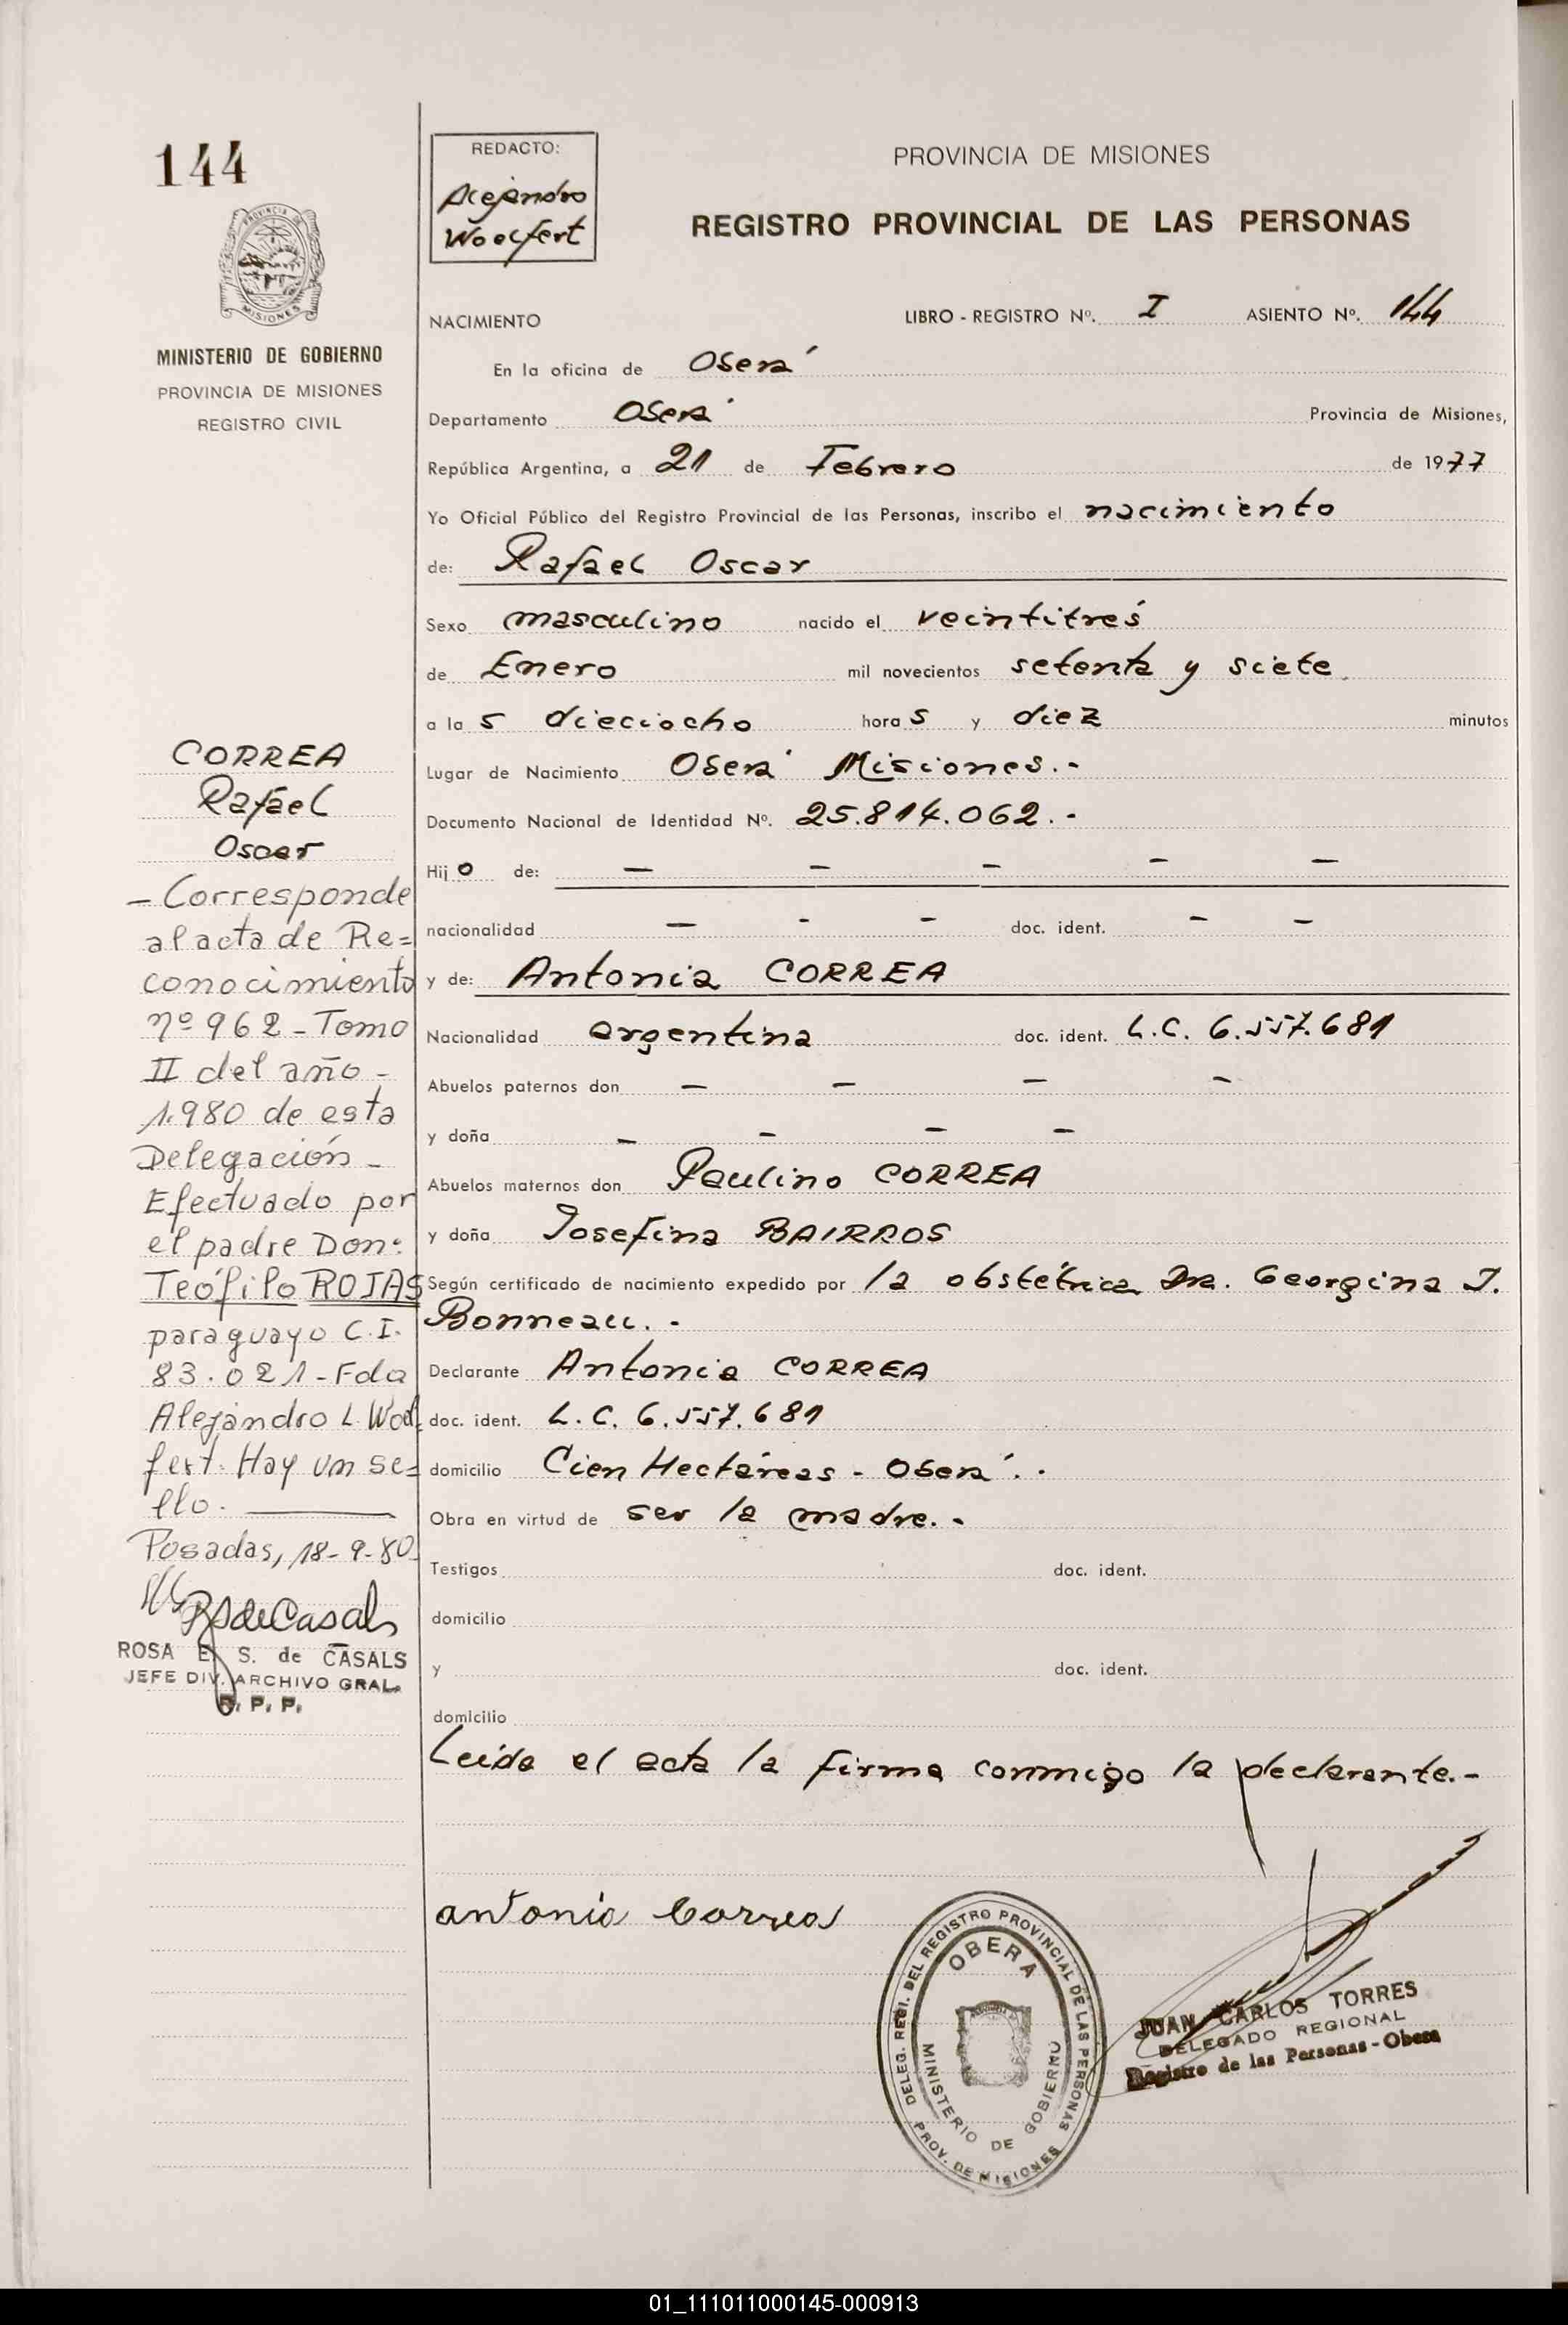 144
PROVINCIA DE
MISIONES
MINISTERIO DE GOBIERNO
PROVINCIA DE MISIONES
REGISTRO CIVIL
REDACTO:
Alejandro
Woelfert
PROVINCIA DE MISIONES
REGISTRO PROVINCIAL DE LAS PERSONAS
NACIMIENTO LIBRO - REGISTRO Nº. I ASIENTO Nº. 144
En la oficina de Oberá
Departamento Oberá Provincia de Misiones,
República Argentina, a 21 de Febrero de 1977
Yo Oficial Público del Registro Provincial de las Personas, inscribo el nacimiento
de: Rafael Oscar
Sexo masculino nacido el veintitrés
de Enero mil novecientos setenta y siete
a la s dieciocho hora s y diez minutos
Lugar de Nacimiento Oberá Misiones.-
Documento Nacional de Identidad Nº. 25.814.062.-
Hij o de: — — — — —
nacionalidad — - - doc. ident. - -
y de: Antonia CORREA
Nacionalidad argentina doc. ident. L.C. 6.557.681
Abuelos paternos don — — — —
y doña — — — —
Abuelos maternos don Paulino CORREA
y doña Josefina BAIRROS
Según certificado de nacimiento expedido por la obstétrica Dra. Georgina J.
Bonneau.-
Declarante Antonia CORREA
doc. ident. L.C. 6.557.681
domicilio Cien Hectáreas - Oberá.-
Obra en virtud de ser la madre.-
Testigos doc. ident.
domicilio
y doc. ident.
domicilio
Leída el acta la firma conmigo la declarante.-
antonia Correa
CORREA
Rafael
Oscar
— Corresponde
al acta de Re=
conocimiento
nº 962 - Tomo
II del año -
1.980 de esta
Delegación -
Efectuado por
el padre Don:
Teófilo ROJAS
paraguayo C.I.
83.021 - Fdo
Alejandro L. Woel
fert. Hay un se=
llo. ———
Posadas, 18-9-80
RSdeCasals
ROSA E. S. de CASALS
JEFE DIV. ARCHIVO GRAL.
R. P. P.
DELEG. REGI. DEL REGISTRO PROVINCIAL DE LAS PERSONAS
PROV. DE MISIONES
OBERA
MINISTERIO DE GOBIERNO
JUAN CARLOS TORRES
DELEGADO REGIONAL
Registro de las Personas - Obera
01_111011000145-000913